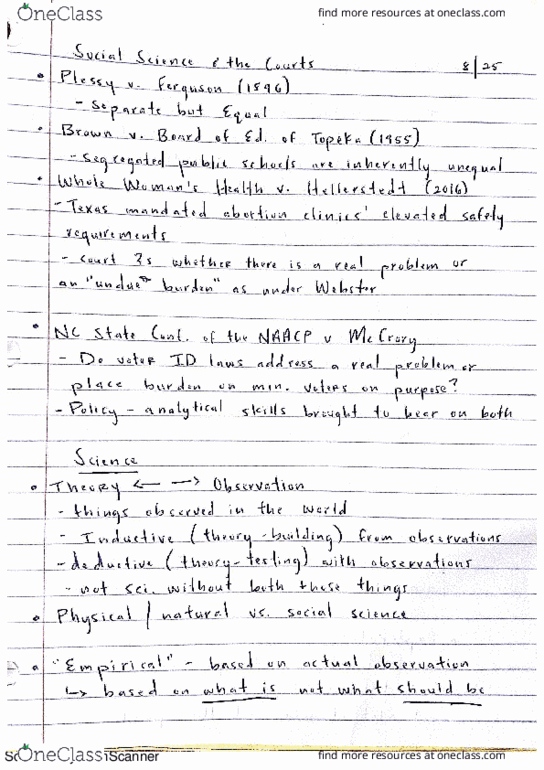 OneClass
find more resources at oneclass.com
Social Science & the Courts 8/25
• Plessy v. Ferguson (1896)
- Separate but Equal
• Brown v. Board of Ed. of Topeka (1955)
- Segregated public schools are inherently unequal
• Whole Woman's Health v. Hellerstedt (2016)
- Texas mandated abortion clinics' elevated safety
requirements
- court ?s whether there is a real problem or
an "undue burden" as under Webster
• NC State Conf. of the NAACP v McCrory
- Do voter ID laws address a real problem or
place burden on min. voters on purpose?
- Policy - analytical skills brought to bear on both
Science
• Theory <— —> Observation
- things observed in the world
- Inductive (theory-building) from observations
- deductive (theory-testing) with observations
- not sci. without both these things
• Physical / natural vs. social science
• "Empirical" - based on actual observation
↳ based on what is not what should be
OneClass
Scanner
find more resources at oneclass.com